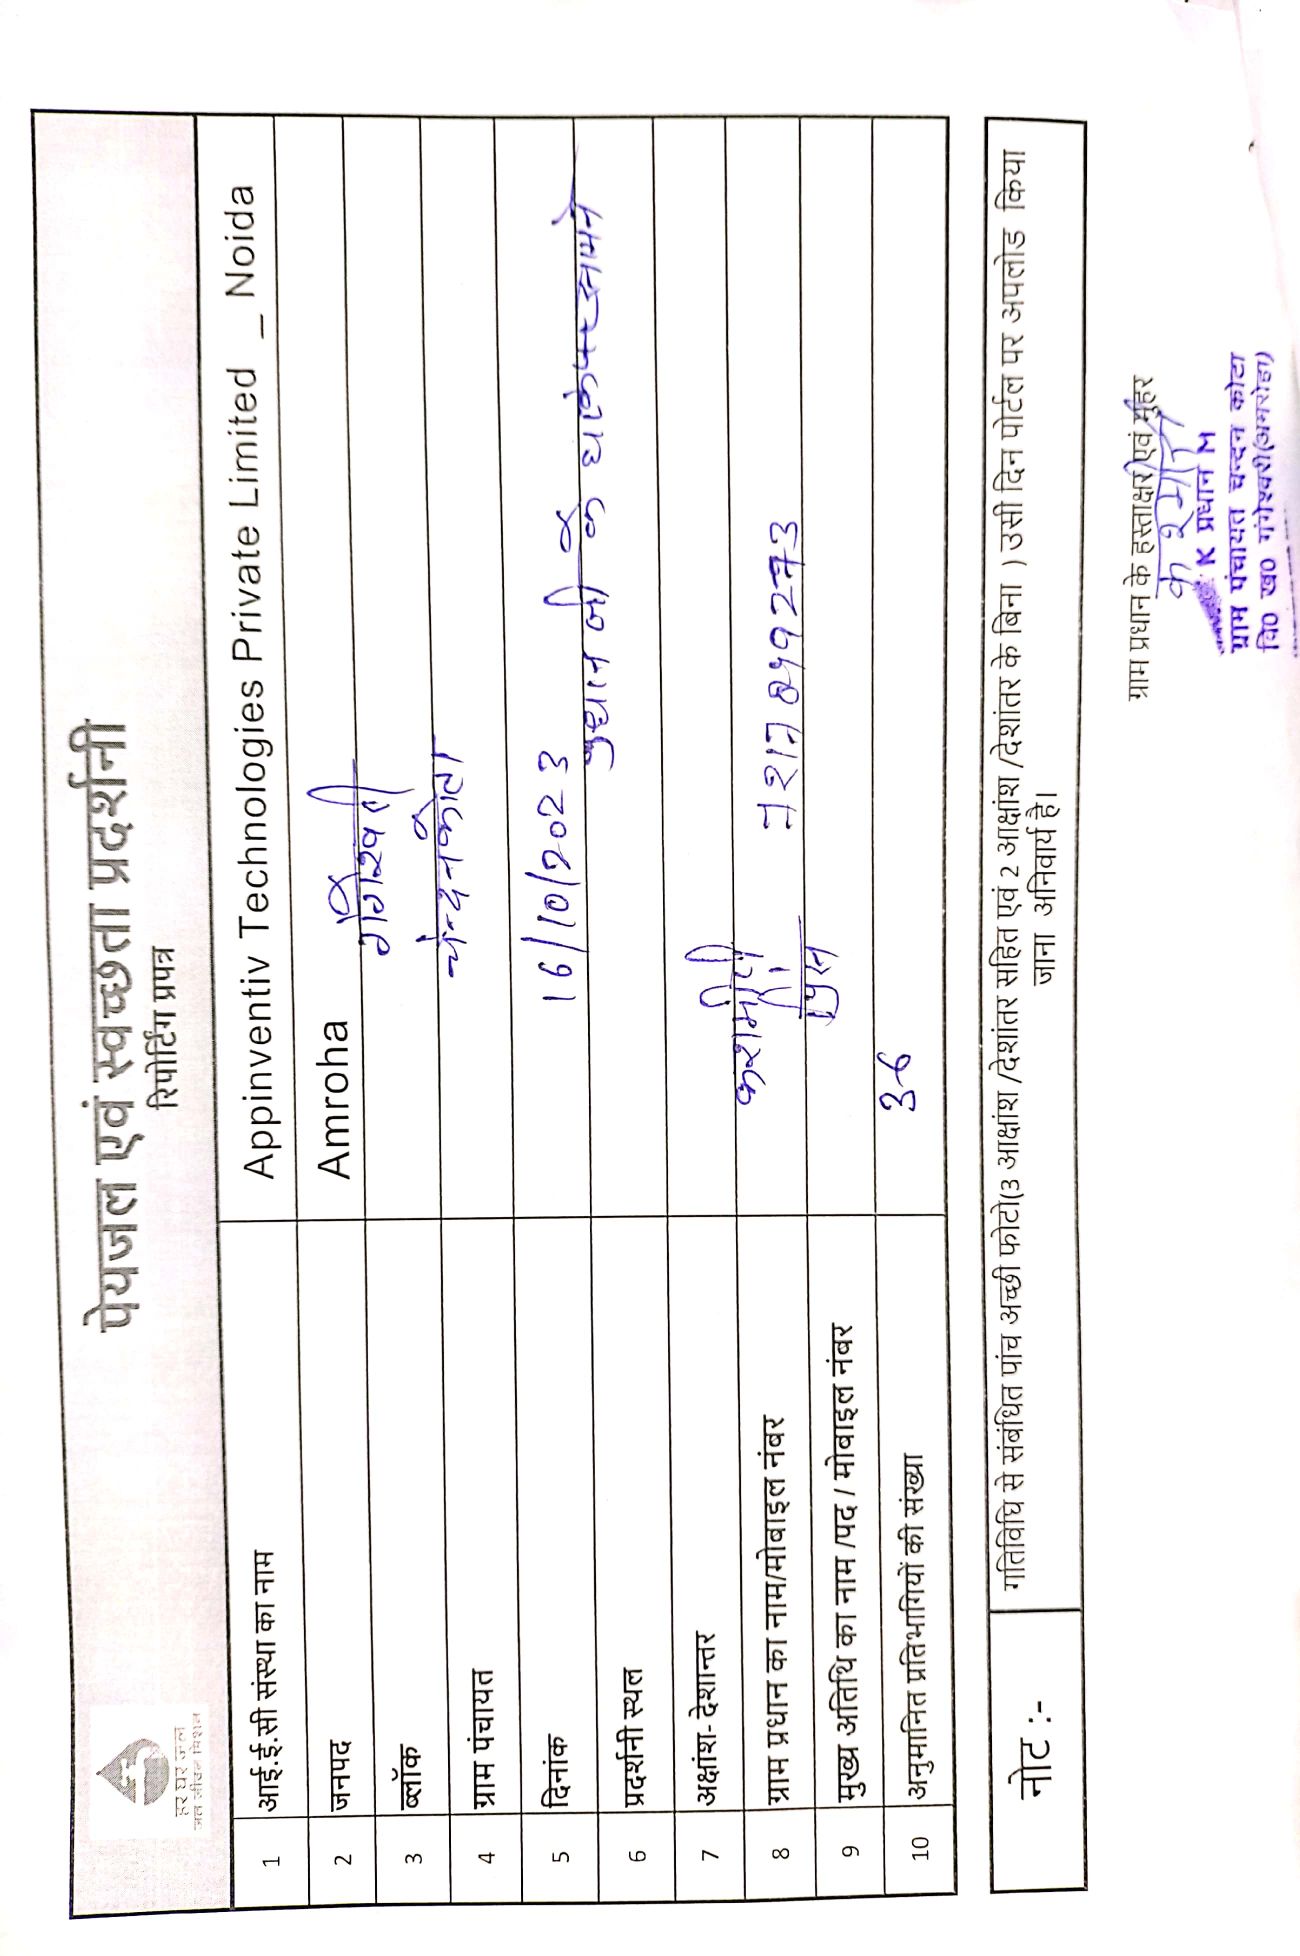 हर घर जल
जल जीवन मिशन
पेयजल एवं स्वच्छता प्रदर्शनी
रिपोर्टिंग प्रपत्र
1 आई.ई.सी संस्था का नाम Appinventiv Technologies Private Limited _ Noida
2 जनपद Amroha
3 ब्लॉक गंगेश्वरी
4 ग्राम पंचायत
5 दिनांक 16/10/2023
6 प्रदर्शनी स्थल प्रधान जी के
7 अक्षांश- देशान्तर
8 ग्राम प्रधान का नाम/मोबाइल नंबर
9 मुख्य अतिथि का नाम /पद / मोबाइल नंबर
10 अनुमानित प्रतिभागियों की संख्या
नोट :- गतिविधि से संबंधित पांच अच्छी फोटो(3 आक्षांश /देशांतर सहित एवं 2 आक्षांश /देशांतर के बिना ) उसी दिन पोर्टल पर अपलोड किया
जाना अनिवार्य है।
ग्राम प्रधान के हस्ताक्षर एवं मुहर
प्रधान
ग्राम पंचायत चन्दन कोटा
वि0 ख0 गंगेश्वरी(अमरोहा)